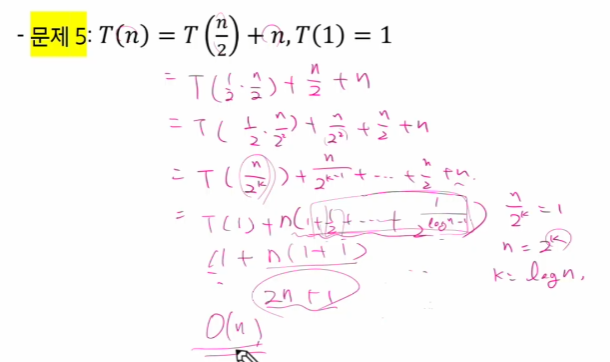 - 문제 5: T(n) = T(n/2) + n, T(1) = 1
= T(1/2 · n/2) + n/2 + n
= T(1/2 · n/2²) + n/2² + n/2 + n
= T(n/2^k) + n/2^(k-1) + ··· + n/2 + n.
= T(1) + n(1 + 1/2 + ··· + 1/2^(log n - 1))
n/2^k = 1
n = 2^k
k = log n.
1 + n(1 + 1)
2n + 1
O(n)